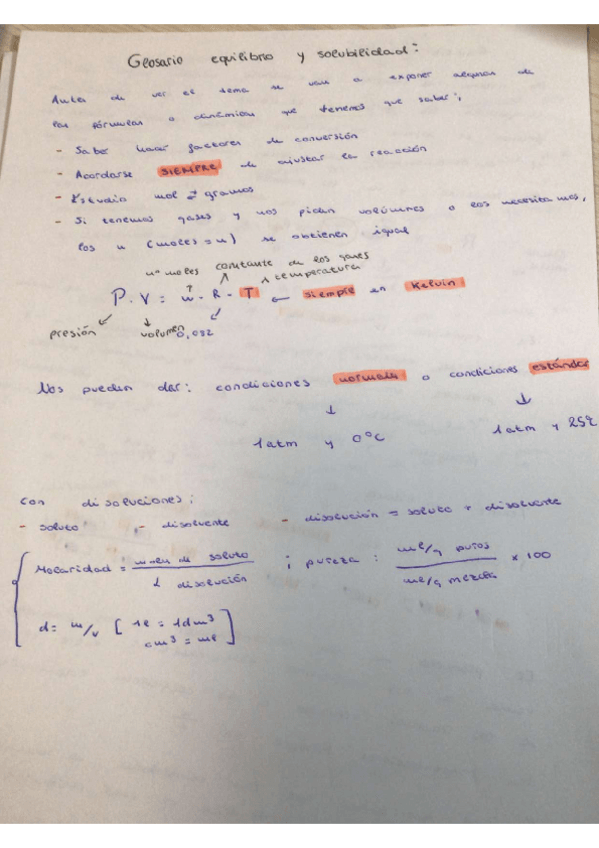 Glosario equilibrio y solubilidad:
Antes de ver el tema se van a exponer algunas de
las fórmulas o dinámicas que tenemos que saber:
- Saber hacer factores de conversión
- Acordarse SIEMPRE de ajustar la reacción
- Estudio mol ⇄ gramos
- Si tenemos gases y nos piden volúmenes o los necesitamos,
los n (moles = n) se obtienen igual
nº moles constante de los gases
temperatura
P.V = n. R. T ← Siempre en Kelvin
presión volumen 0,082
Nos pueden dar: condiciones normales o condiciones estándar
1 atm y 0ºC 1 atm y 25º
Con disoluciones:
- soluto - disolvente - disolución = soluto + disolvente
Molaridad = moles de soluto / l disolución ; pureza : ml/g puros / ml/g mezcla x 100
d = m/v [ 1l = 1dm³
cm³ = ml ]